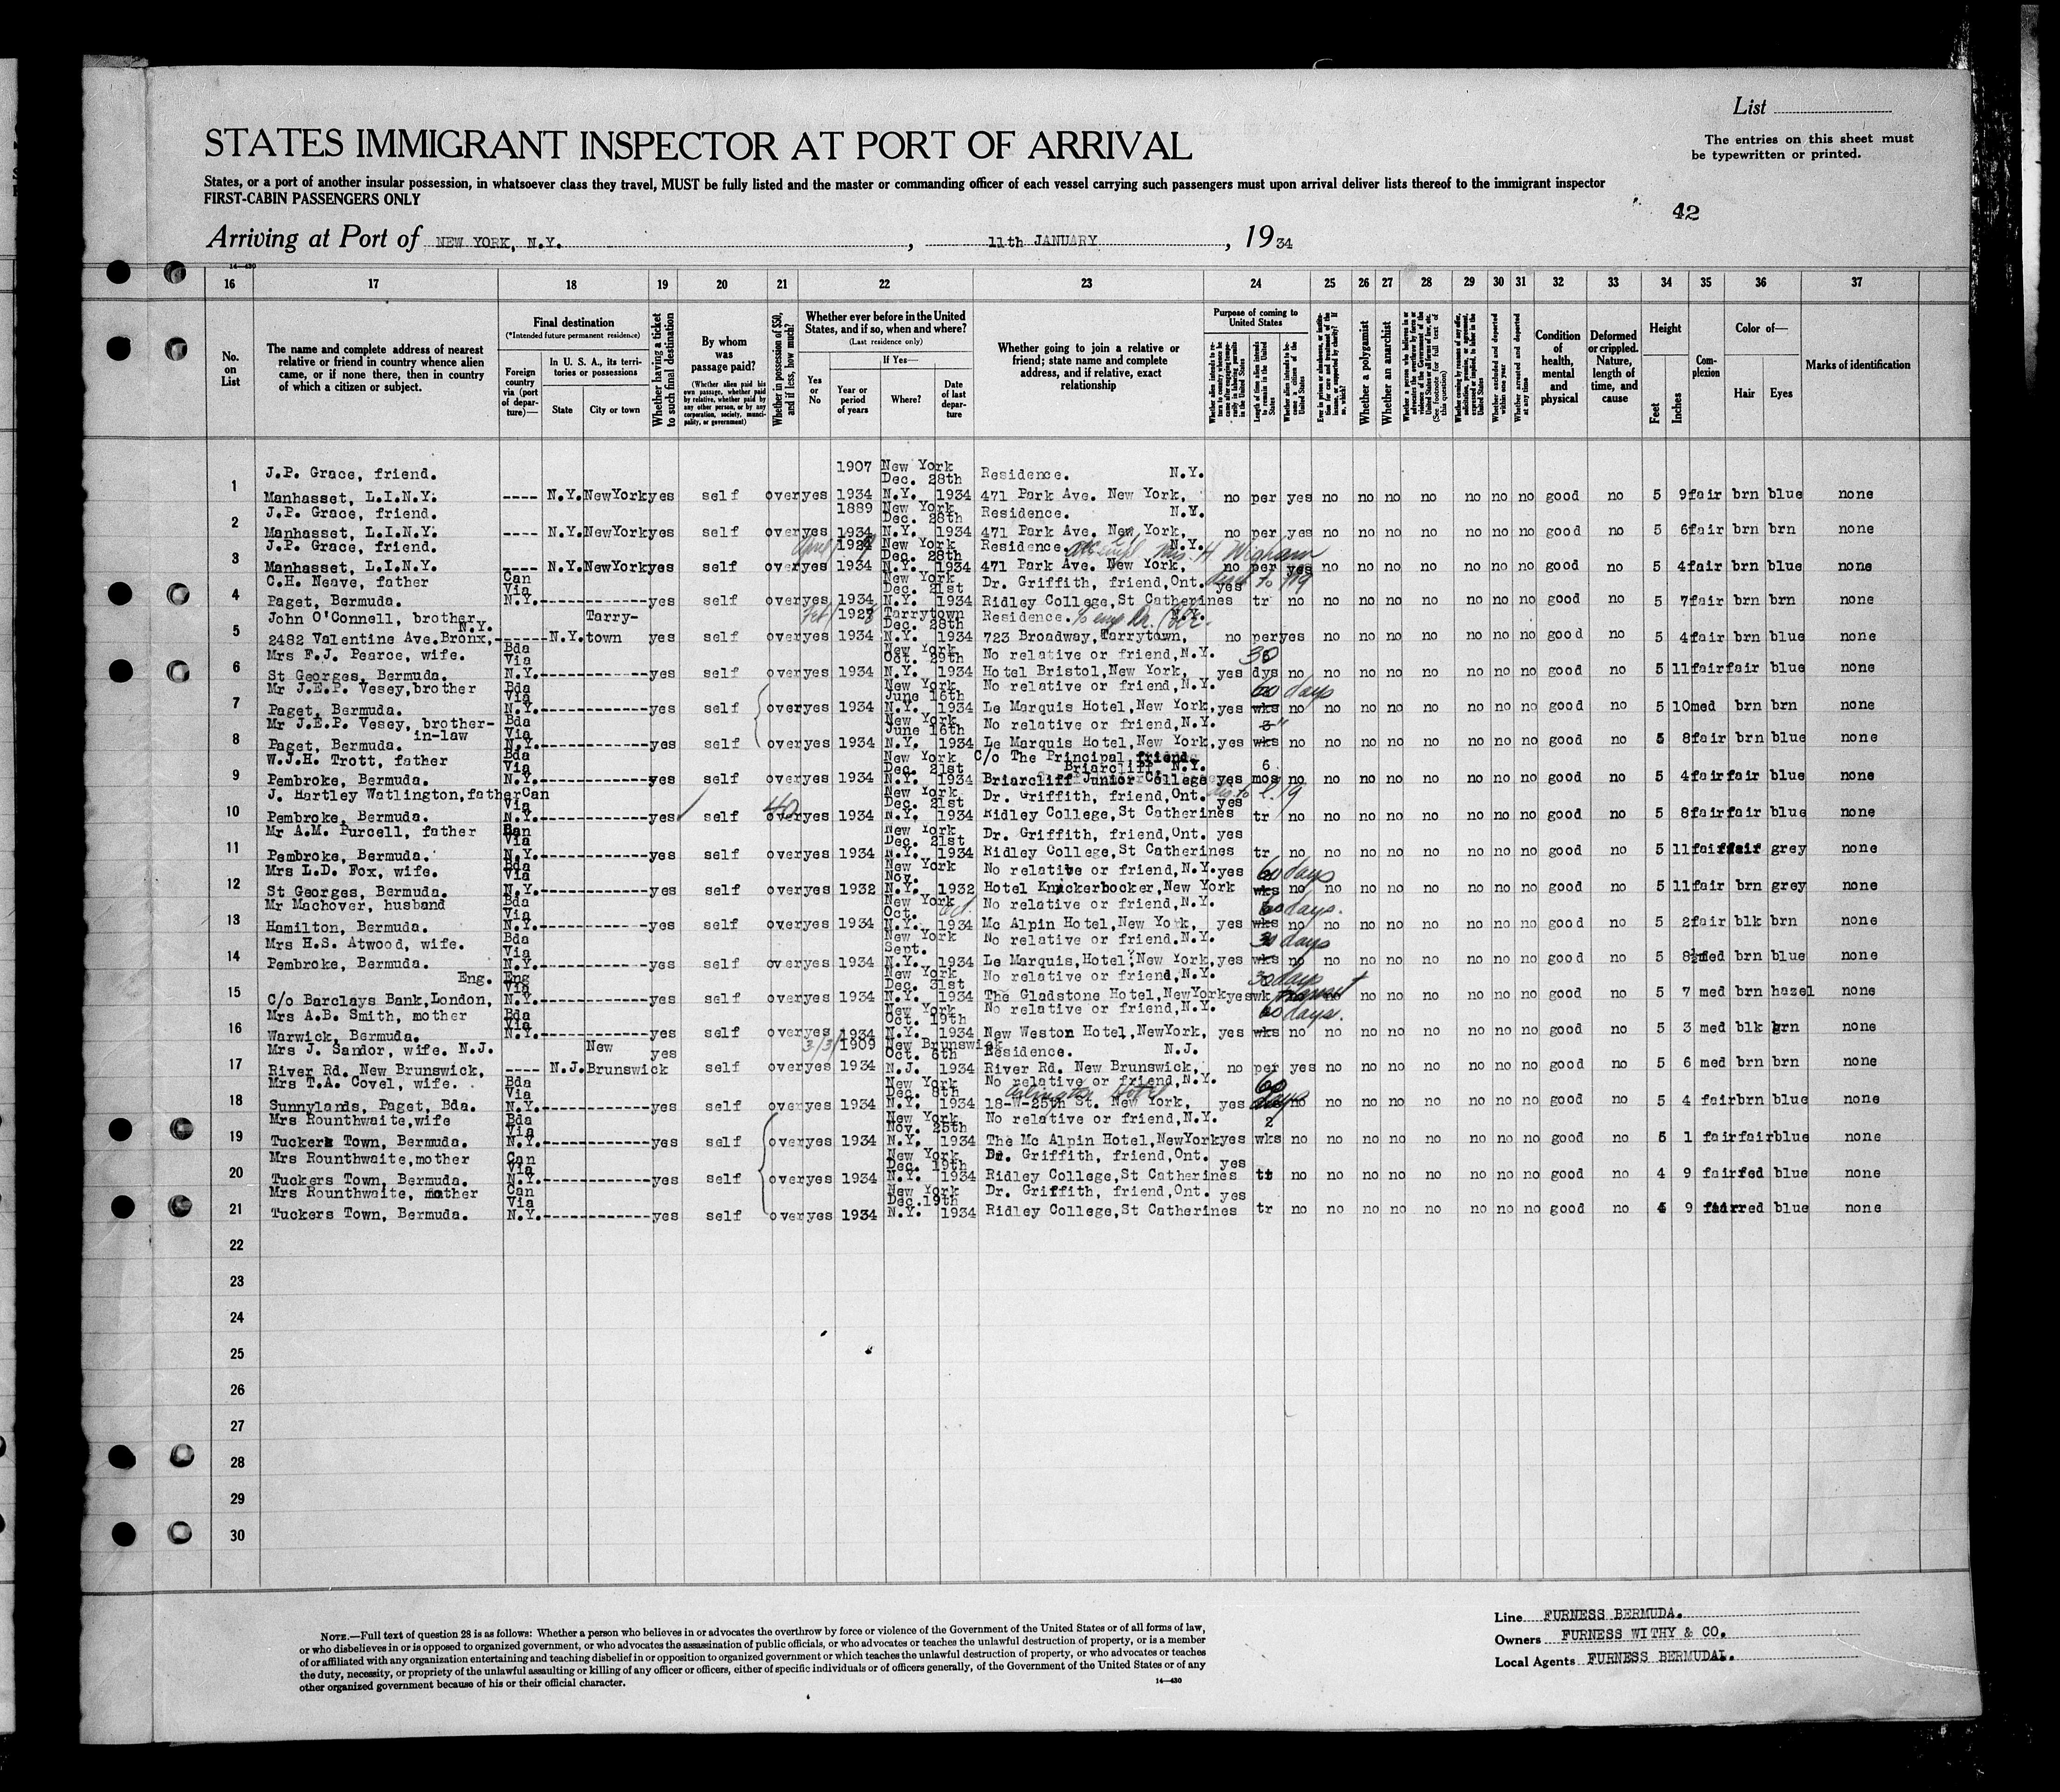 List
The entries on this sheet must
be typewritten or printed.
STATES IMMIGRANT INSPECTOR AT PORT OF ARRIVAL
States, or a port of another insular possession, in whatsoever class they travel, MUST be fully listed and the master or commanding officer of each vessel carrying such passengers must upon arrival deliver lists thereof to the immigrant inspector
FIRST-CABIN PASSENGERS ONLY
42
Arriving at Port of NEW YORK, N.Y. , 11th JANUARY , 19 34
14—430
16 17 18 19 20 21 22 23 24 25 26 27 28 29 30 31 32 33 34 35 36 37
No. on List
The name and complete address of nearest relative or friend in country whence alien came, or if none there, then in country of which a citizen or subject.
Final destination
(*Intended future permanent residence)
Foreign country via (port of departure)—
In U. S. A., its territories or possessions
State
City or town
Whether having a ticket to such final destination
By whom was passage paid?
(Whether alien paid his own passage, whether paid by relative, whether paid by any other person, or by any corporation, society, municipality, or government)
Whether in possession of $50, and if less, how much?
Whether ever before in the United States, and if so, when and where?
(Last residence only)
Yes or No
If Yes—
Year or period of years
Where?
Date of last departure
Whether going to join a relative or friend; state name and complete address, and if relative, exact relationship
Purpose of coming to United States
Length of time alien intends to remain in the United States
Whether alien intends to become a citizen of the United States
Whether a polygamist
Whether an anarchist
Whether excluded and deported within one year
Whether arrested and deported at any time
Condition of health, mental and physical
Deformed or crippled. Nature, length of time, and cause
Height
Feet
Inches
Complexion
Color of—
Hair
Eyes
Marks of identification
J.P. Grace, friend. 1907 New York Dec. 28th Residence. N.Y.
1 Manhasset, L.I.N.Y. ---- N.Y. NewYork yes self over yes 1934 N.Y. 1934 471 Park Ave. New York, no per yes no no no no no no no good no 5 9 fair brn blue none
J.P. Grace, friend. 1889 New York Dec. 28th Residence. N.Y.
2 Manhasset, L.I.N.Y. ---- N.Y. NewYork yes self over yes 1934 N.Y. 1934 471 Park Ave. New York, no per yes no no no no no no no good no 5 6 fair brn brn none
J.P. Grace, friend. New York Dec. 28th Residence. N.Y.
3 Manhasset, L.I.N.Y. ---- N.Y. NewYork yes self over yes 1934 N.Y. 1934 471 Park Ave. New York, no per yes no no no no no no no good no 5 4 fair brn blue none
C.H. Neave, father Can Via New York Dec. 21st Dr. Griffith, friend, Ont. yes
4 Paget, Bermuda. N.Y. yes self over yes 1934 N.Y. 1934 Ridley College, St Catherines tr no no no no no no no no good no 5 7 fair brn brn none
John O'Connell, brother N.Y. Tarry- Tarrytown Dec. 28th Residence.
5 2482 Valentine Ave. Bronx, N.Y. town yes self over yes 1934 N.Y. 1934 723 Broadway, Tarrytown, no per yes no no no no no no no good no 5 4 fair brn blue none
Mrs F.J. Pearce, wife. Bda Via New York Oct. 29th No relative or friend, N.Y. 30
6 St Georges, Bermuda. N.Y. yes self over yes 1934 N.Y. 1934 Hotel Bristol, New York, yes dys no no no no no no no no good no 5 11 fair fair blue none
Mr J.E.P. Vesey, brother Bda Via New York June 16th No relative or friend, N.Y. 60 days
7 Paget, Bermuda. N.Y. yes self over yes 1934 N.Y. 1934 Le Marquis Hotel, New York, yes wks no no no no no no no no good no 5 10 med brn brn none
Mr J.E.P. Vesey, brother-in-law Bda Via New York June 16th No relative or friend, N.Y. 3 "
8 Paget, Bermuda. N.Y. yes self over yes 1934 N.Y. 1934 Le Marquis Hotel, New York, yes wks no no no no no no no no good no 5 8 fair brn blue none
W.J.H. Trott, father Bda Via New York Dec. 21st C/o The Principal, friend, Briarcliff N.Y. 6
9 Pembroke, Bermuda. N.Y. yes self over yes 1934 N.Y. 1934 Briarcliff Junior College yes mos no no no no no no no no good no 5 4 fair fair blue none
J. Hartley Watlington, father Can Via New York Dec. 21st Dr. Griffith, friend, Ont. yes
10 Pembroke, Bermuda. N.Y. yes self over 40 yes 1934 N.Y. 1934 Ridley College, St Catherines tr no no no no no no no no good no 5 8 fair fair blue none
Mr A.M. Purcell, father Can Via New York Dec. 21st Dr. Griffith, friend, Ont. yes
11 Pembroke, Bermuda. N.Y. yes self over yes 1934 N.Y. 1934 Ridley College, St Catherines tr no no no no no no no no good no 5 11 fair fair grey none
Mrs L.D. Fox, wife. Bda Via New York Nov. No relative or friend, N.Y. yes 60 days
12 St Georges, Bermuda. N.Y. yes self over yes 1932 N.Y. 1932 Hotel Knickerbocker, New York wks no no no no no no no no good no 5 11 fair brn grey none
Mr Machover, husband Bda Via New York Oct. Oct. No relative or friend, N.Y. 60 days.
13 Hamilton, Bermuda. N.Y. yes self over yes 1934 N.Y. 1934 Mc Alpin Hotel, New York, yes wks no no no no no no no no good no 5 2 fair blk brn none
Mrs H.S. Atwood, wife. Bda Via New York Sept. No relative or friend. N.Y. 30 days
14 Pembroke, Bermuda. N.Y. yes self over yes 1934 N.Y. 1934 Le Marquis, Hotel, New York, yes wks no no no no no no no no good no 5 8½ med brn blue none
Eng. Eng Via New York Dec. 31st No relative or friend, N.Y. 30 days
15 C/o Barclays Bank, London, N.Y. yes self over yes 1934 N.Y. 1934 The Gladstone Hotel, NewYork yes wk no no no no no no no good no 5 7 med brn hazel none
Mrs A.B. Smith, mother Bda Via New York Oct. 19th No relative or friend, N.Y. 60 days.
16 Warwick, Bermuda. N.Y. yes self over yes 1934 N.Y. 1934 New Weston Hotel, NewYork, yes wks no no no no no no no no good no 5 3 med blk brn none
Mrs J. Sandor, wife. N.J. New yes 3/3/ 1909 New Brunswick Oct. 6th Residence. N.J.
17 River Rd. New Brunswick, ---- N.J. Brunswick self over yes 1934 N.J. 1934 River Rd. New Brunswick, no per yes no no no no no no no good no 5 6 med brn brn none
Mrs T.A. Covel, wife. Bda Via New York Dec. 8th No relative or friend, N.Y. Arlington Hotel 60
18 Sunnylands, Paget, Bda. N.Y. yes self over yes 1934 N.Y. 1934 18-W-25th St. New York, yes days no no no no no no no no good no 5 4 fair brn blue none
Mrs Rounthwaite, wife Bda Via New York Nov. 25th No relative or friend, N.Y. 2
19 Tuckers Town, Bermuda. N.Y. yes self over yes 1934 N.Y. 1934 The Mc Alpin Hotel, NewYork yes wks no no no no no no no no good no 5 1 fair fair blue none
Mrs Rounthwaite, mother Can Via New York Dec. 19th Dr. Griffith, friend, Ont. yes
20 Tuckers Town, Bermuda. N.Y. yes self over yes 1934 N.Y. 1934 Ridley College, St Catherines tr no no no no no no no no good no 4 9 fair red blue none
Mrs Rounthwaite, mother Can Via New York Dec. 19th Dr. Griffith, friend, Ont. yes
21 Tuckers Town, Bermuda. N.Y. yes self over yes 1934 N.Y. 1934 Ridley College, St Catherines tr no no no no no no no no good no 4 9 fair red blue none
22
23
24
25
26
27
28
29
30
Line FURNESS BERMUDA.
Owners FURNESS WITHY & CO.
Local Agents FURNESS BERMUDAL.
NOTE.—Full text of question 28 is as follows: Whether a person who believes in or advocates the overthrow by force or violence of the Government of the United States or of all forms of law,
or who disbelieves in or is opposed to organized government, or who advocates the assassination of public officials, or who advocates or teaches the unlawful destruction of property, or is a member
of or affiliated with any organization entertaining and teaching disbelief in or opposition to organized government or which teaches the unlawful destruction of property, or who advocates or teaches
the duty, necessity, or propriety of the unlawful assaulting or killing of any officer or officers, either of specific individuals or of officers generally, of the Government of the United States or of any
other organized government because of his or their official character.
14—430